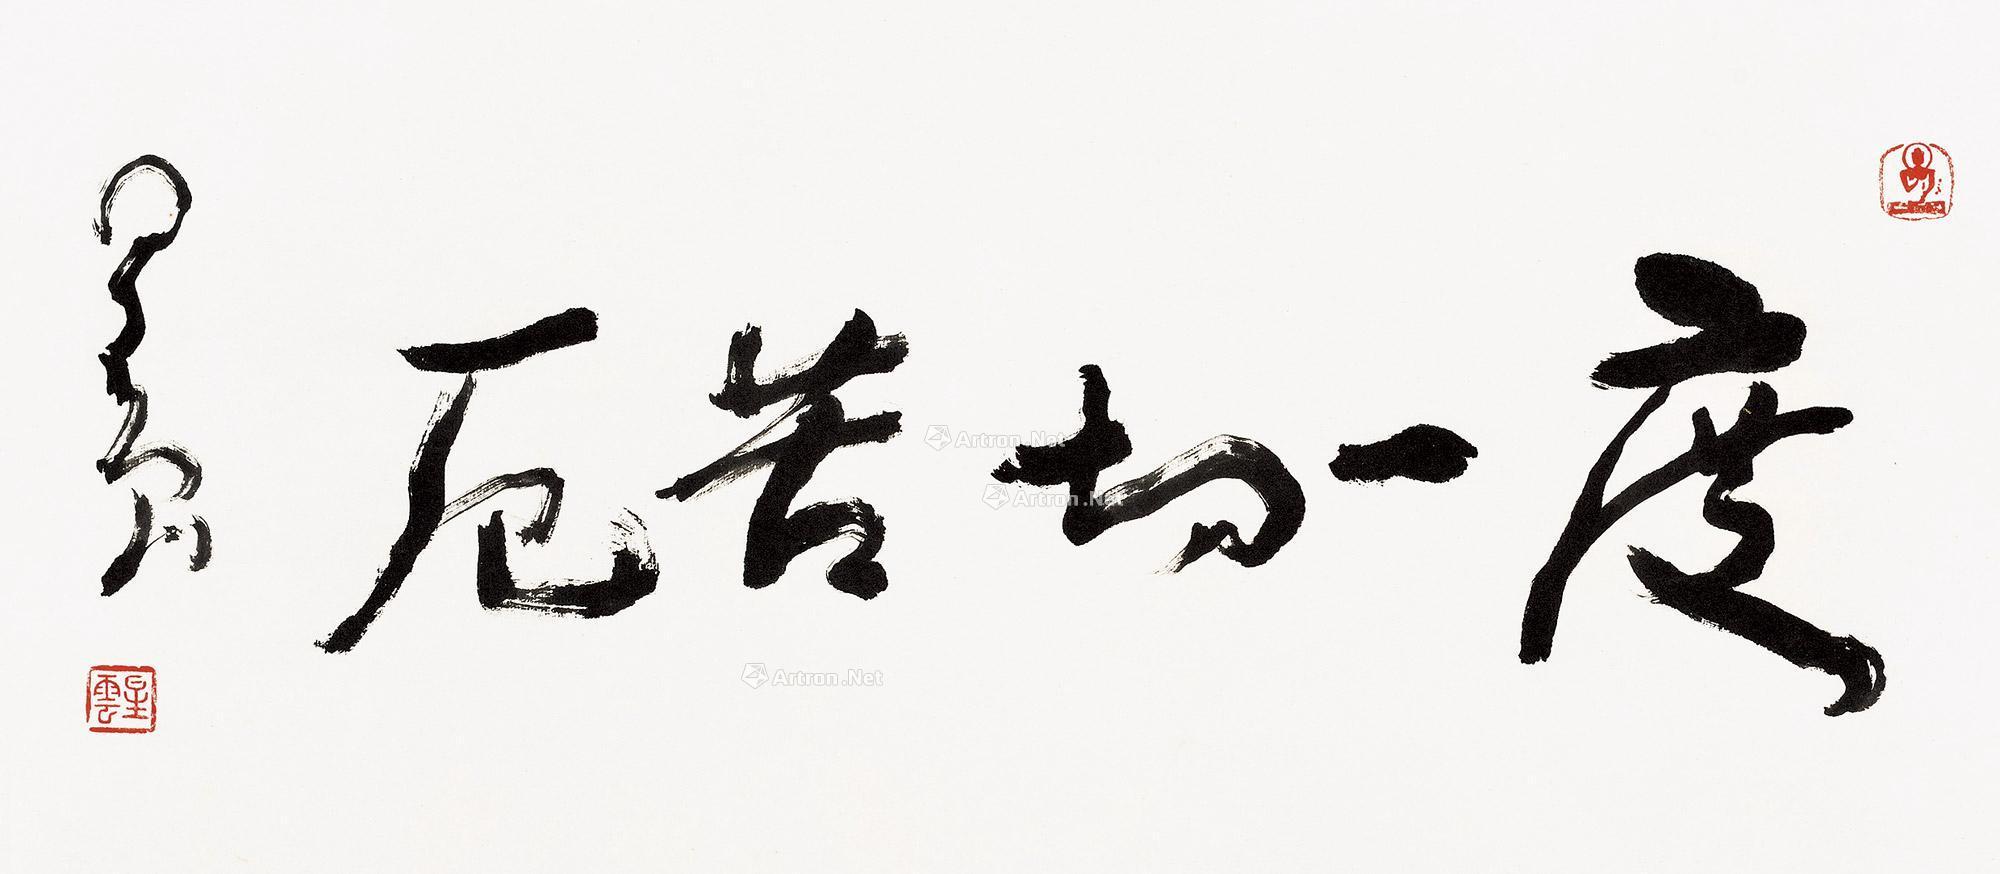 度一切苦厄
星雲
Artron.Net
Artron.Net
Artron.Net